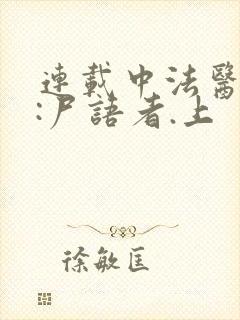 連載中法醫
:尸語者.上
徐敏匡